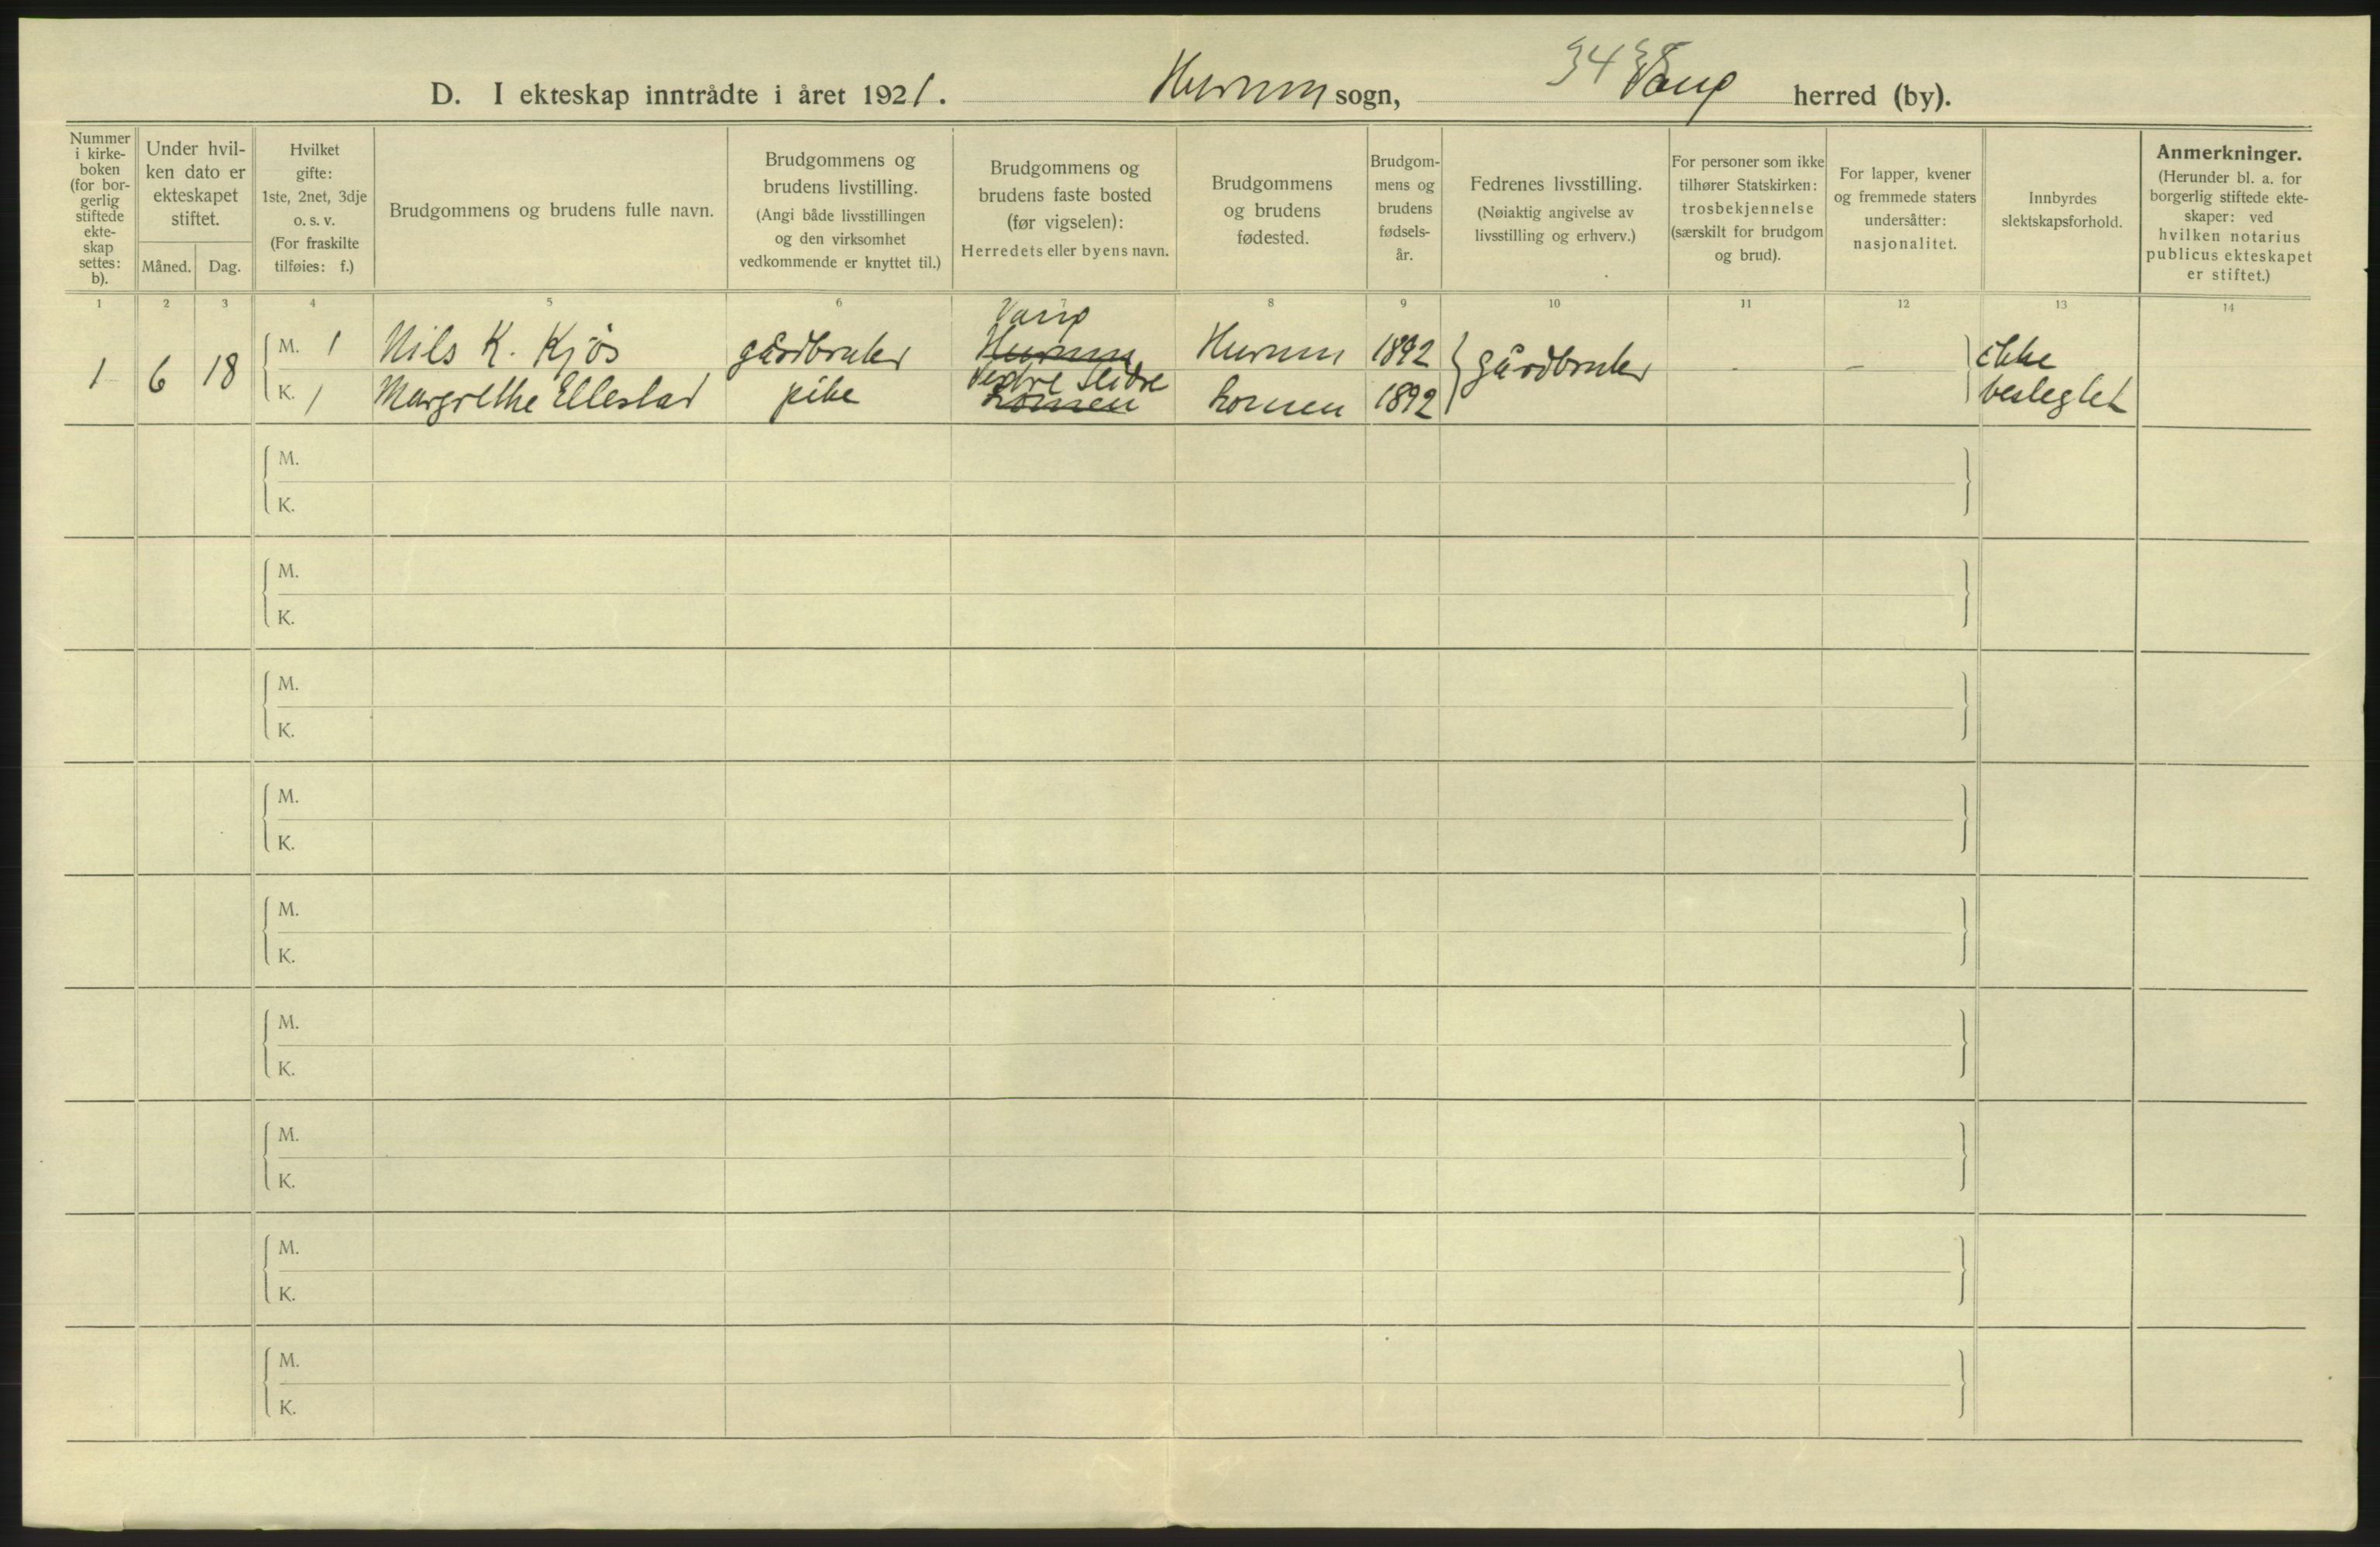 34 38
D. I ekteskap inntrådte i året 1921. Hurum sogn, Vang herred (by).
Nummer
i kirke-
boken
(for bor-
gerlig
stiftede
ekte-
skap
settes:
b).
Under hvil-
ken dato er
ekteskapet
stiftet.
Måned. Dag.
Hvilket
gifte:
1ste, 2net, 3dje
o. s. v.
(For fraskilte
tilføies: f.)
Brudgommens og brudens fulle navn.
Brudgommens og
brudens livstilling.
(Angi både livsstillingen
og den virksomhet
vedkommende er knyttet til.)
Brudgommens og
brudens faste bosted
(før vigselen):
Herredets eller byens navn.
Brudgommens
og brudens
fødested.
Brudgom-
mens og
brudens
fødsels-
år.
Fedrenes livsstilling.
(Nøiaktig angivelse av
livsstilling og erhverv.)
For personer som ikke
tilhører Statskirken:
trosbekjennelse
(særskilt for brudgom
og brud).
For lapper, kvener
og fremmede staters
undersåtter:
nasjonalitet.
Innbyrdes
slektskapsforhold.
Anmerkninger.
(Herunder bl. a. for
borgerlig stiftede ekte-
skaper: ved
hvilken notarius
publicus ekteskapet
er stiftet.)
1 2 3 4 5 6 7 8 9 10 11 12 13 14
Vang
1 6 18 M. 1 Nils K. Kjös gårdbruker Hurum Hurum 1892 gårdbruker - - ikke
Vestre Slidre
K. 1 Margrethe Ellestad pike Lomen Lomen 1892 beslegtet
M.
K.
M.
K.
M.
K.
M.
K.
M.
K.
M.
K.
M.
K.
M.
K.
M.
K.